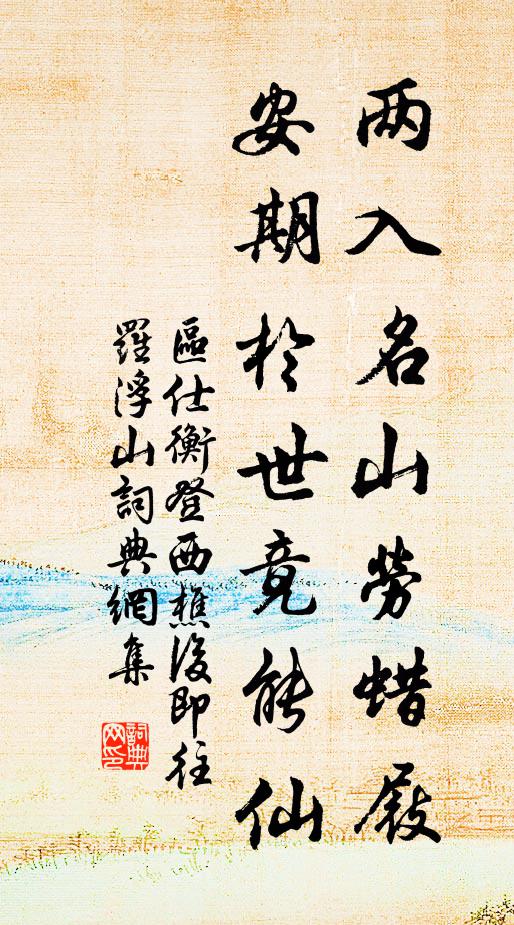 两入名山勞蜡屐
安期於世竟能仙
區仕衡登西樵後即往
羅浮山詞典網集
詞典
网印